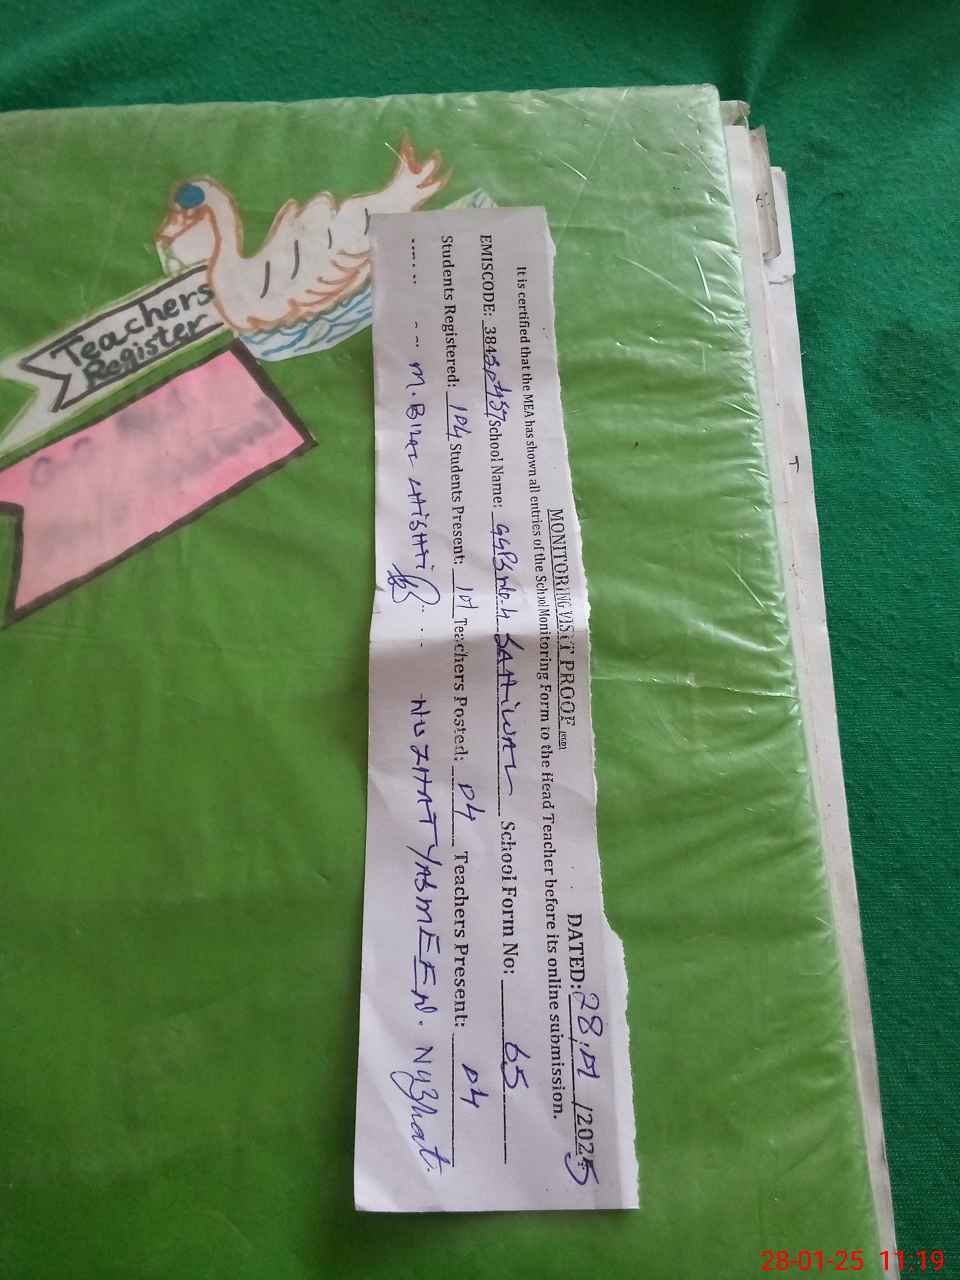 Teachers
Register
MONITORING VISIT PROOF DATED: 28/01/2025
It is certified that the MEA has shown all entries of the School Monitoring Form to the Head Teacher before its online submission.
EMISCODE: 384 School Name: SAHIWAL School Form No: 65
Students Registered: 104 Students Present: 101 Teachers Posted: 04 Teachers Present: 04
M. CHISHTI NUZHAT YASMEEN. Nuzhat
28-01-25 11:19